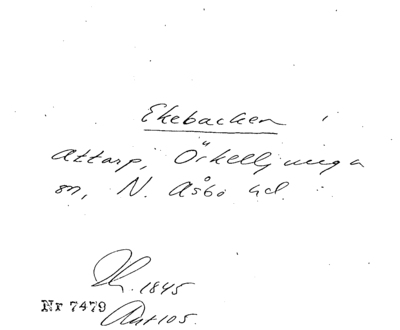 Ekebacken i
Attarp, Örkelljunga
sn, N. Åsbo hd.
1845
Nr 7479
Ant 105.